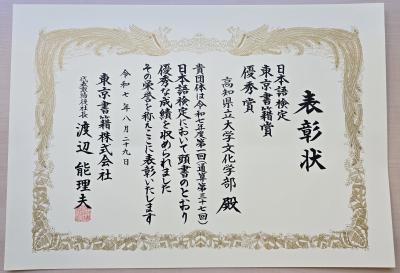 表彰状
日本語検定
東京書籍賞
優秀賞
高知県立大学文化学部 殿
貴団体は令和七年度第一回(通算第三十七回)
日本語検定において頭書のとおり
優秀な成績を収められました
その栄誉を称えここに表彰いたします
令和七年八月二十九日
東京書籍株式会社
代表取締役社長 渡辺能理夫